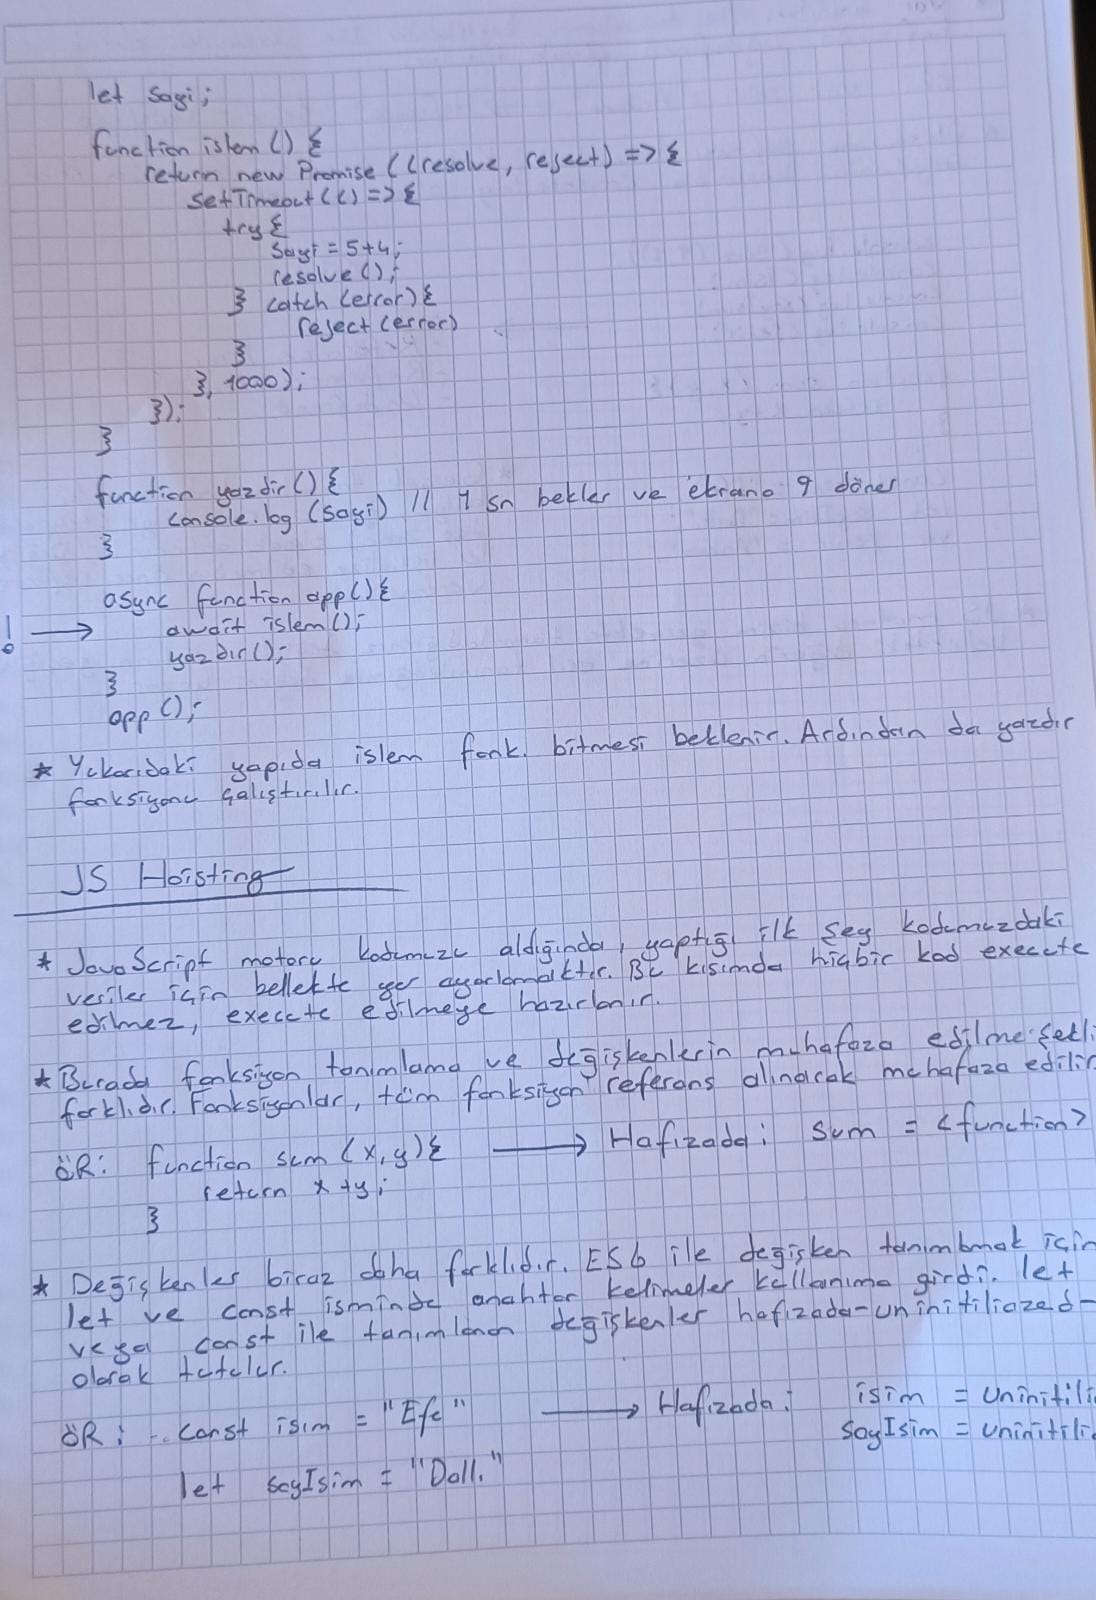 let sayi;
function islem () {
return new Promise ((resolve, reject) => {
setTimeout (() => {
try {
sayi = 5+4;
resolve ();
} catch (error) {
reject (error)
}
}, 1000);
});
}
function yazdir () {
console.log (sayi) // 1 sn bekler ve ekrana 9 döner
}
async function app () {
! → await islem ();
yazdir ();
}
app ();
* Yukarıdaki yapıda islem fonk. bitmesi beklenir. Ardından da yazdır
fonksiyonu çalıştırılır.
JS Hoisting
* JavaScript motoru kodumuzu aldığında, yaptığı ilk şey kodumuzdaki
veriler için bellekte yer ayarlamaktır. Bu kısımda hiçbir kod execute
edilmez, execute edilmeye hazırlanır.
* Burada fonksiyon tanımlama ve değişkenlerin muhafaza edilme şekli
farklıdır. Fonksiyonlar, tüm fonksiyon referans alınarak muhafaza edilir
ÖR: function sum (x,y) { → Hafızada: sum = <function>
return x+y;
}
* Değişkenler biraz daha farklıdır. ES6 ile değişken tanımlamak için
let ve const isminde anahtar kelimeler kullanıma girdi. let
veya const ile tanımlanan değişkenler hafızada-uninitiliazed-
olarak tutulur.
ÖR: const isim = "Efe" → Hafızada: isim = uninitili
soyIsim = uninitili
let soyIsim = "Dall."